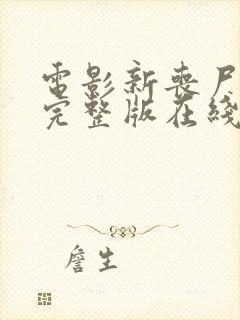 電影新喪尸
完整版在綫
詹生